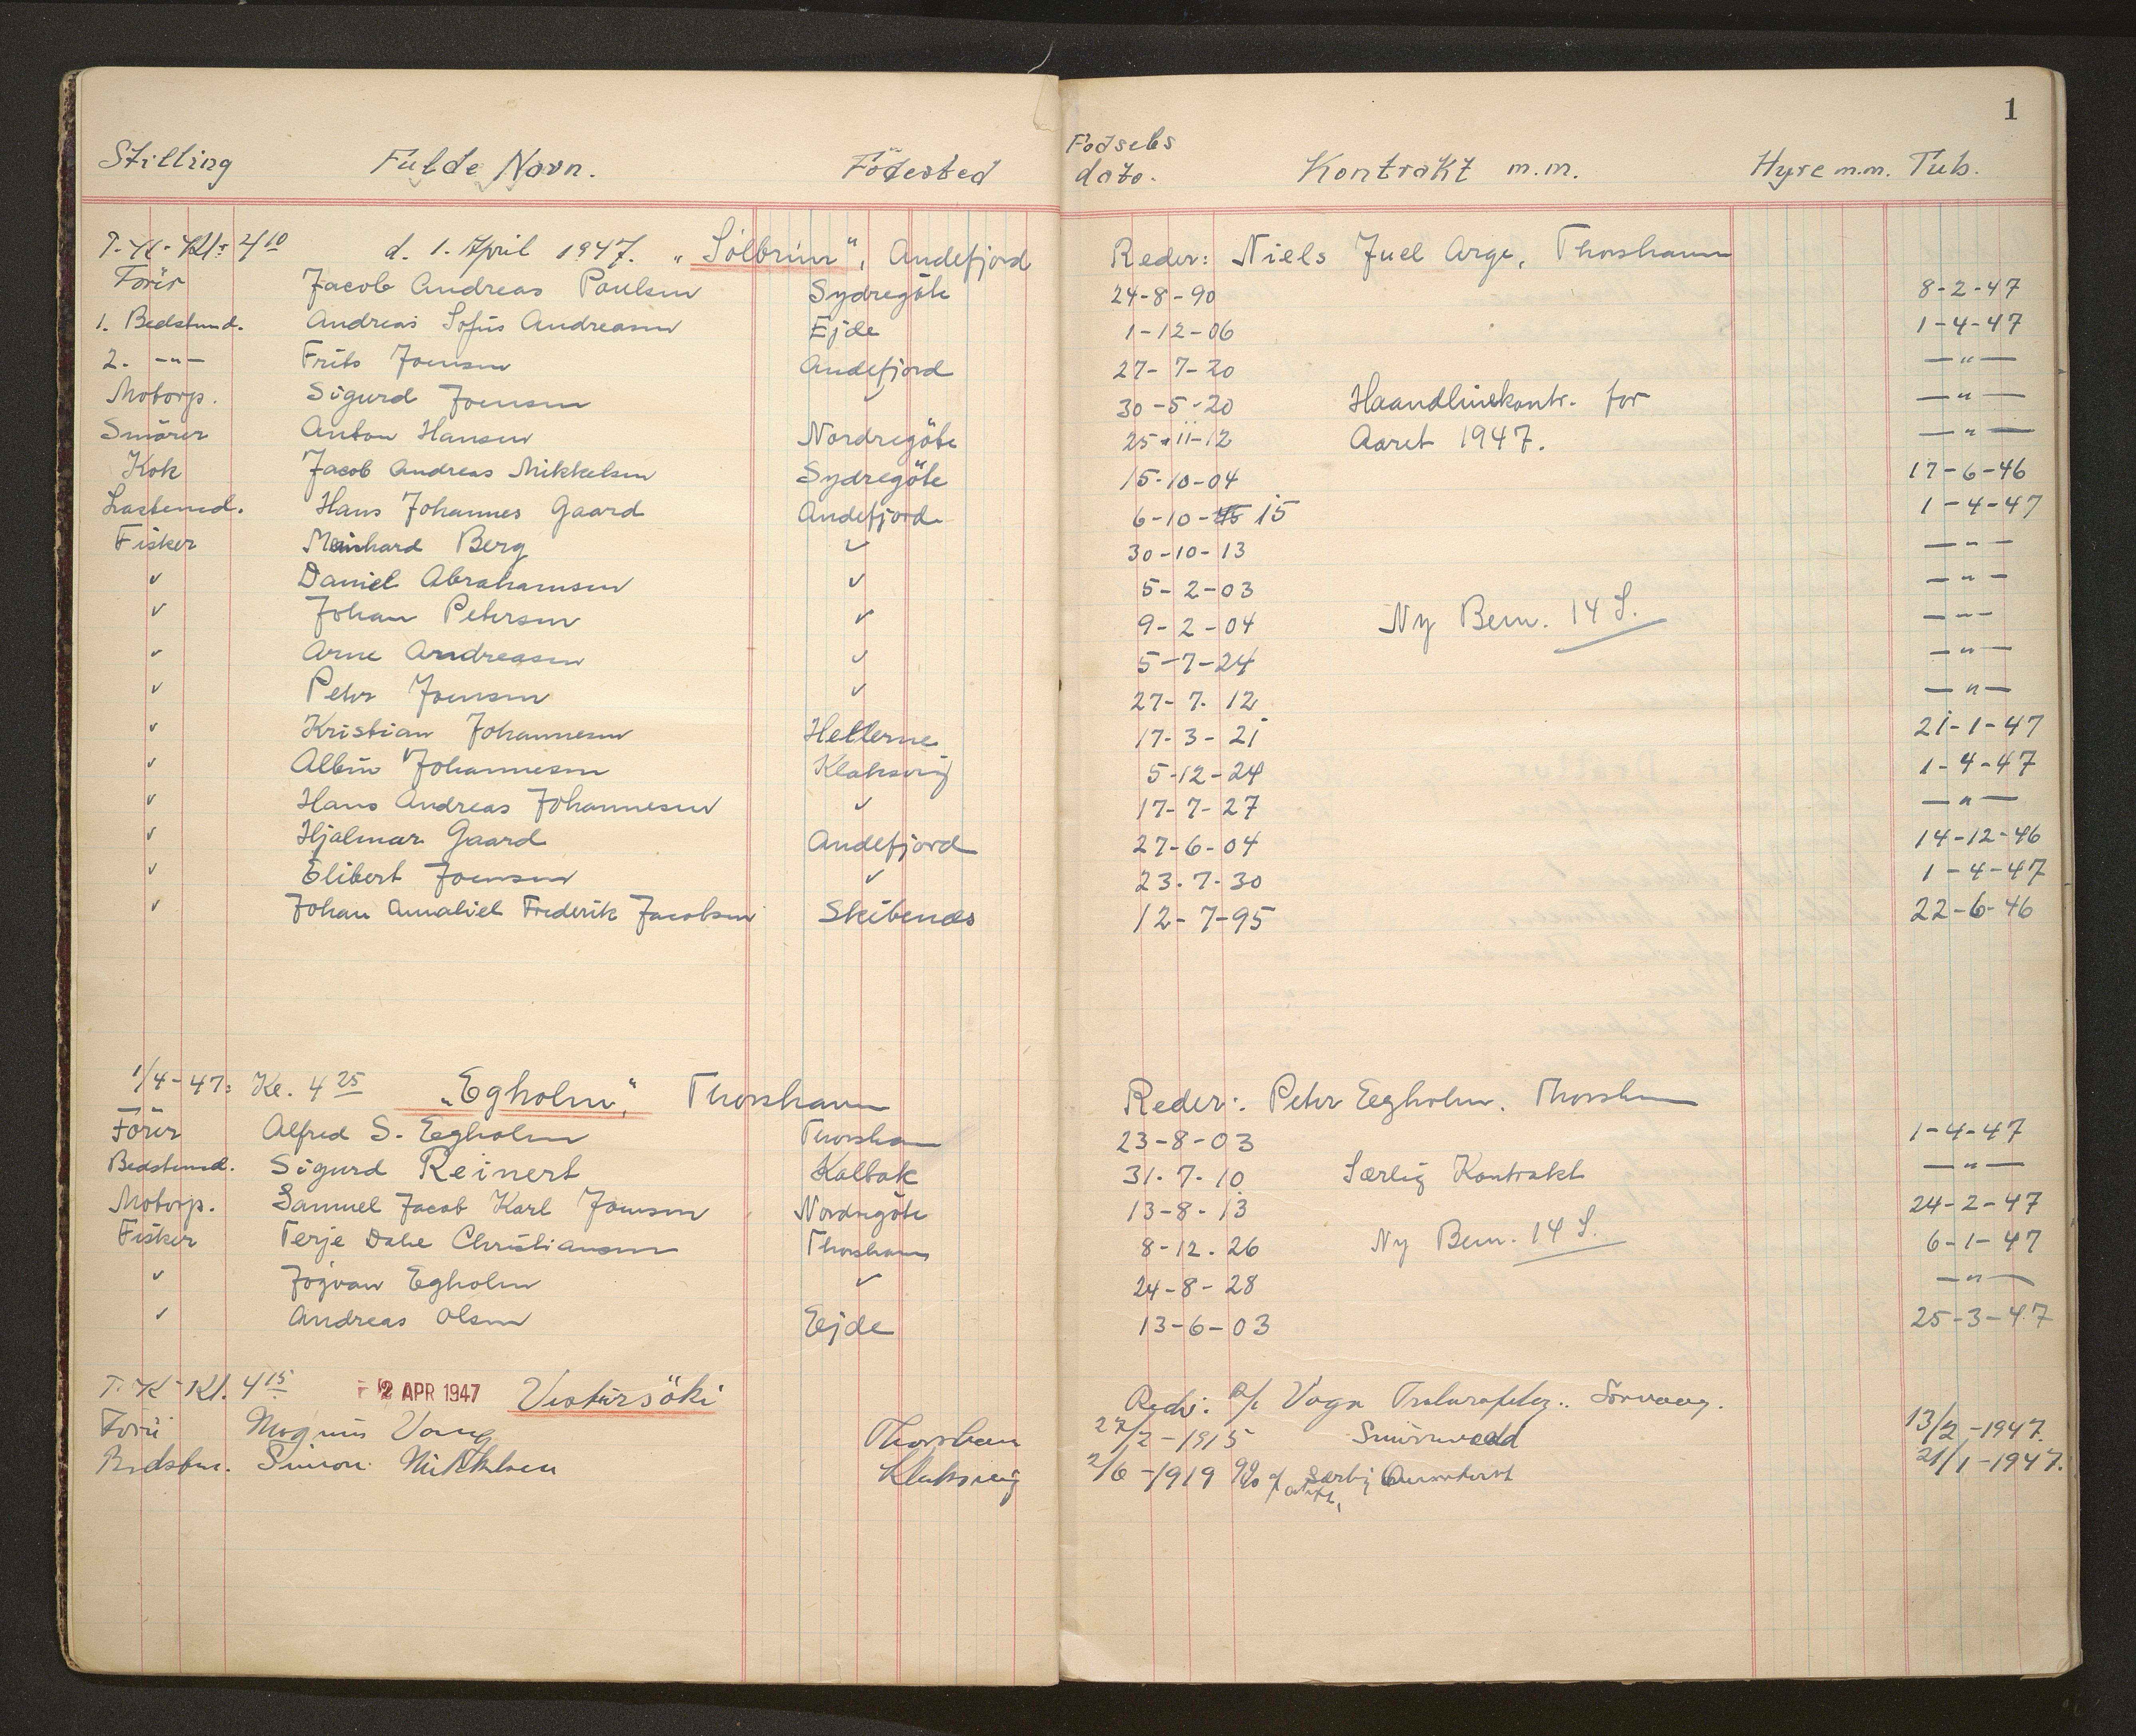 1
Stilling Fulde Navn. Födested Födsels dato. Kontrakt m.m. Hyre m.m. Tub.
d. 1. April 1947. „Sólbrún", Andefjord Reder: Niels Juel Arge, Thorshavn
Förir Jacob Andreas Poulsen Sydregöte 24-8-90 8-2-47
1. Bedstmd. Andreas Sofus Andreasen Ejde 1-12-06 1-4-47
2. -"- Frits Joensen Andefjord 27-7-20 -"-
Motorp. Sigurd Joensen 30-5-20 Haandlinekontr. for -"-
Smörer Anton Hansen Nordregöte 25-11-12 Aaret 1947. -"-
Kok Jacob Andreas Mikkelsen Sydregöte 15-10-04 17-6-46
Lastemd. Hans Johannes Gaard Andefjord 6-10-15 1-4-47
Fisker Meinhard Berg ✓ 30-10-13 -"-
✓ Daniel Abrahamsen ✓ 5-2-03 -"-
✓ Johan Petersen ✓ 9-2-04 Ny Bem. 14 S. -"-
✓ Arne Andreasen ✓ 5-7-24 -"-
✓ Peter Joensen ✓ 27-7-12 -"-
✓ Kristian Johannesen Hellerne 17-3-21 21-1-47
✓ Albin Johannesen Klaksvig 5-12-24 1-4-47
✓ Hans Andreas Johannesen ✓ 17-7-27 -"-
✓ Hjalmar Gaard Andefjord 27-6-04 14-12-46
✓ Elibert Joensen ✓ 23-7-30 1-4-47
✓ Johan Amaliel Frederik Jacobsen Skibenæs 12-7-95 22-6-46
1/4-47: Kl. 4 25 „Egholm", Thorshavn Reder: Peter Egholm. Thorshavn
Förer Alfred S. Egholm Thorshavn 23-8-03 1-4-47
Bedstemd. Sigurd Reinert Kalbak 31-7-10 Særlig Kontrakt -"-
Motorp. Samuel Jacob Karl Joensen Nordregöte 13-8-13 24-2-47
Fisker Terje Dahe Christiansen Thorshavn 8-12-26 Ny Bem. 14 S. 6-1-47
✓ Jógvan Egholm ✓ 24-8-28 -"-
✓ Andreas Olsen Ejde 13-6-03 25-3-47
T.K. Kl. 4 15 2 APR 1947 Vestursöki Reder: Vaga Sörvaag.
Förer Magnus Thorshavn 27/2-1915 13/2-1947.
Bedstm. Simon Mikkelsen Klaksvig 2/6-1919 Særlig 21/1-1947.